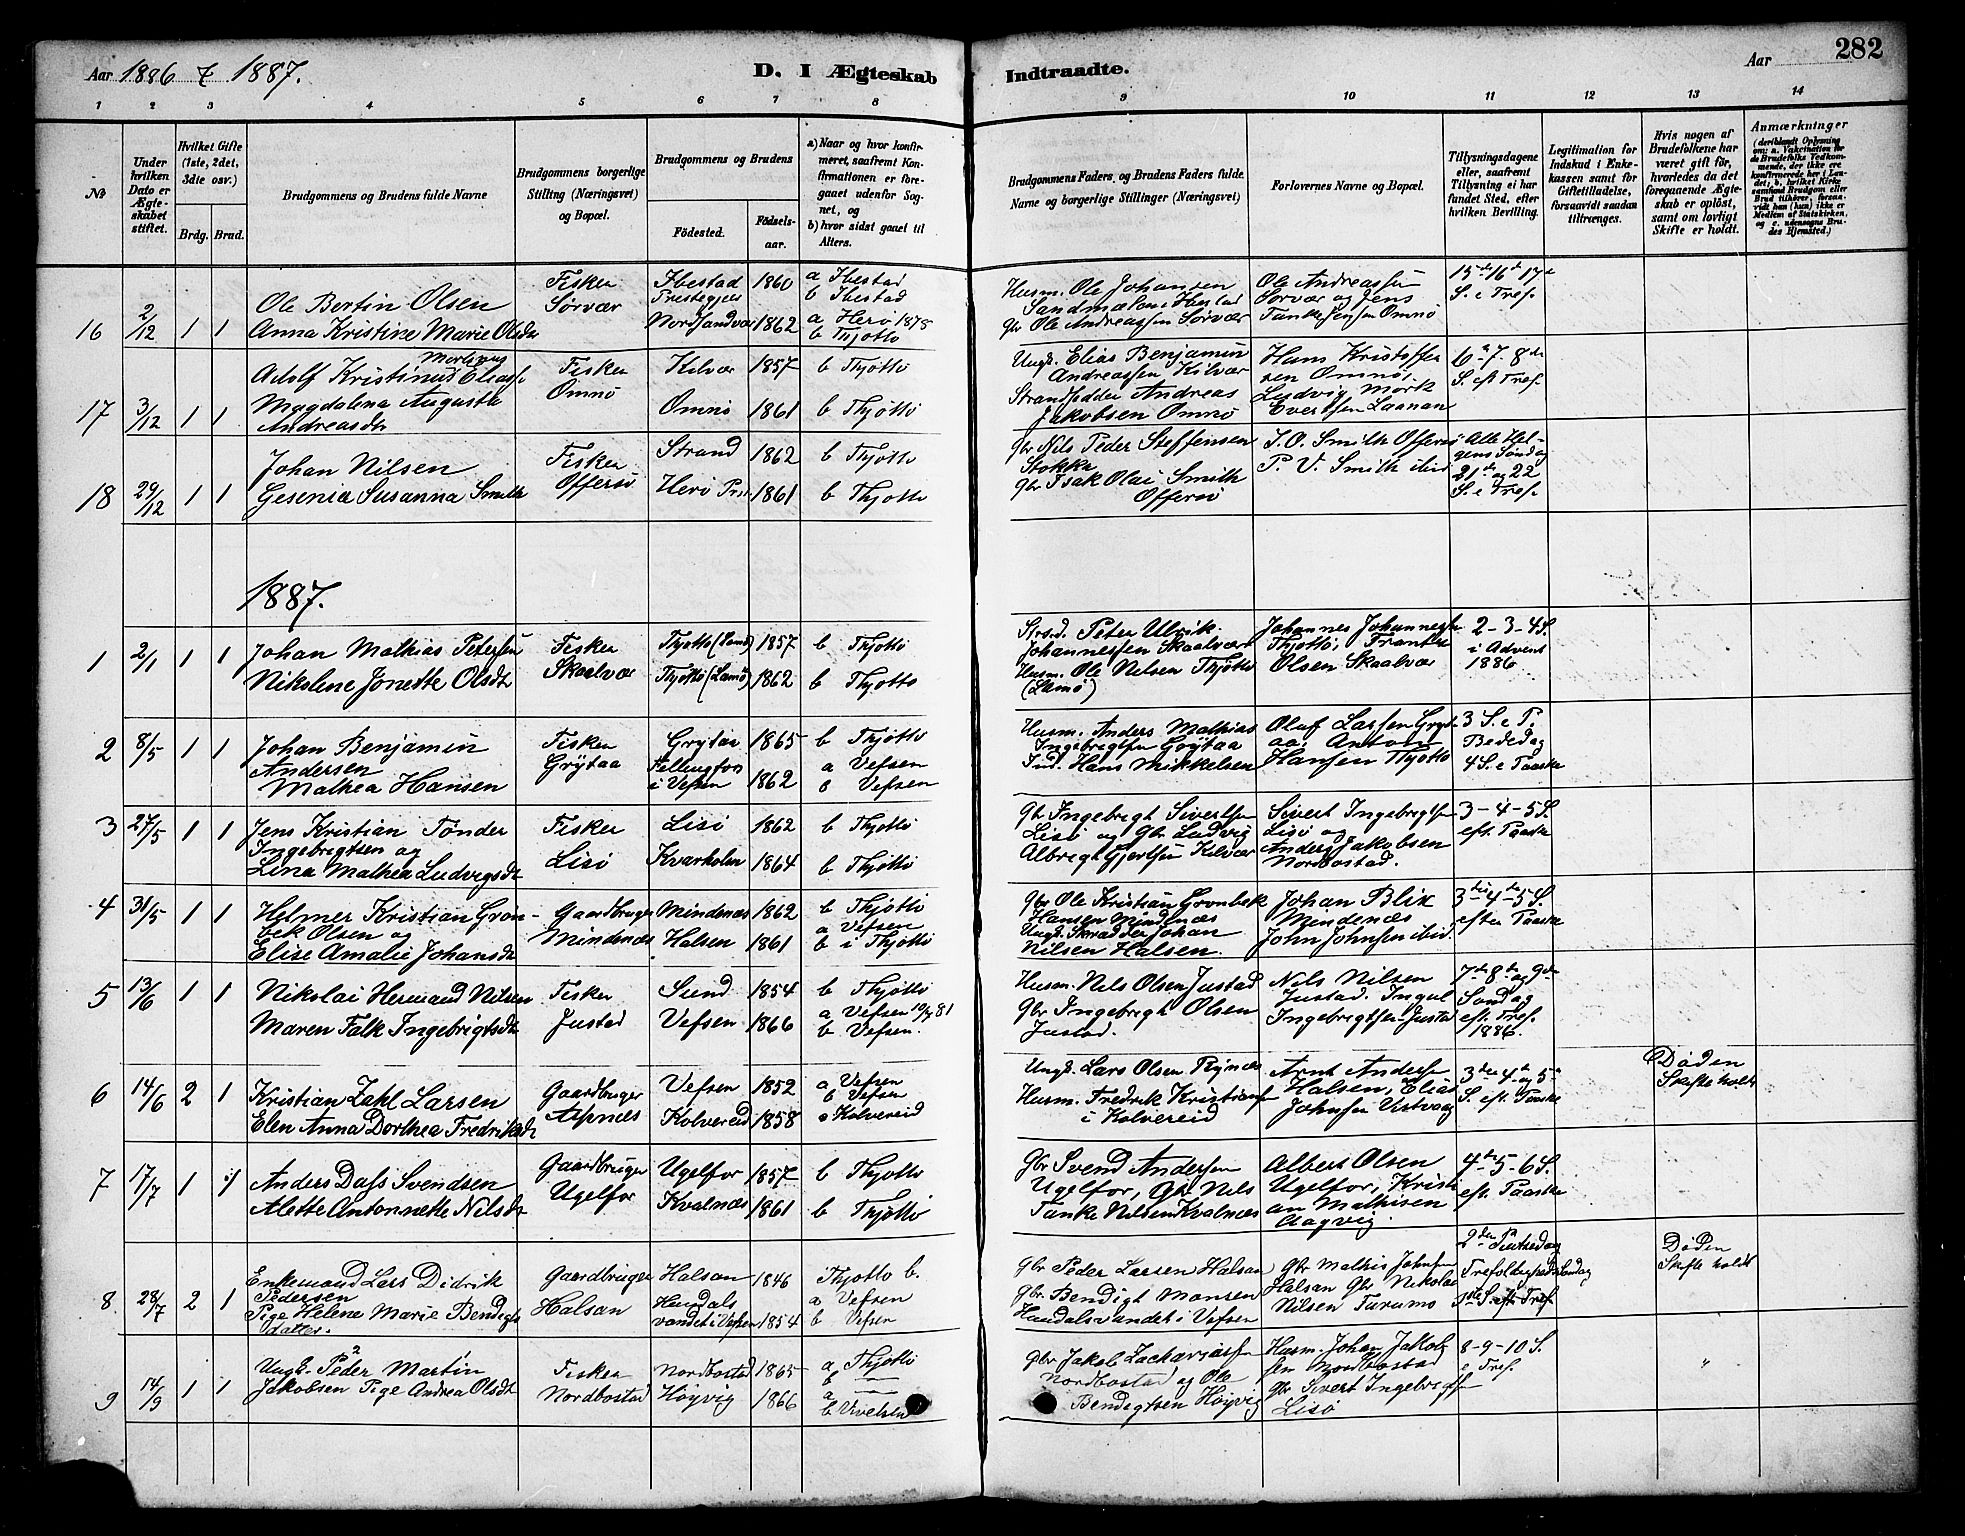 Aar 1886 & 1887.
D. I Ægteskab Indtraadte.
Aar
282
1 2 3 4 5 6 7 8 9 10 11 12 13 14
No
Under hvilken Dato er Ægteskabet stiftet.
Hvilket Gifte (1ste, 2det, 3die osv.)
Brdg. Brud.
Brudgommens og Brudens fulde Navne
Brudgommens borgerlige Stilling (Næringsvei) og Bopæl.
Brudgommens og Brudens
Fødested.
Fødsels-aar.
a) Naar og hvor konfirmeret, saafremt Konfirmationen er foregaaet udenfor Sognet, og
b) hvor sidst gaaet til Alters.
Brudgommens Faders, og Brudens Faders fulde Navne og borgerlige Stillinger (Næringsvei)
Forlovernes Navne og Bopæl.
Tillysningsdagene eller, saafremt Tillysning ei har fundet Sted, efter hvilken Bevilling.
Legitimation for Indskud i Enkekassen samt for Giftetilladelse, forsaavidt saadan tiltrænges.
Hvis nogen af Brudefolkene har været gift før, hvorledes da det foregaaende Ægteskab er opløst, samt om lovligt Skifte er holdt.
Anmærkninger
16 2/12 1 1 Ole Bertin Olsen
Anna Kristine Marie Olsdr
Fisker Sørvær
Ibestad Prestegjel 1860
Nordsandvær 1862
a Ibestad
b Ibestad
a Herø 1878
b Thjøtto
Husm. Ole Johansen
Sandmælen i Ibestad
gbr Ole Andreassen Sørvær
Ole Andreassen
Sørvær og Jens
Tanke Jensen Omnø
15de 16de 17de
S. e Tref.
17 3/12 1 1 Adolf Kristinus Eliass
Magdalena Augusta
Andreasdtr
Fisker Omnø
Kilvær 1857 b Thjøtto
Omnø 1861 b Thjøtto
Ungk. Elias Benjamin
Andreassen Kilvær
Strandsidder Andreas
Jakobsen Omnø
Hans Kristoffersen Omnø,
Ludvig Mørk
Evertsen Laanan
6te 7. 8de
S. eft Tref.
18 29/12 1 1 Johan Nilsen
Gesenia Susanna Smith
Fisker Offersø
Strand 1862 b Thjøtto
Herø Pr. 1861 b Thjøtto
gbr Nils Peder Steffensen
Stokka
gbr Isak Olai Smith
Offersø
I. O. Smith Offersø
P. V. Smith ibid
Alle Helgens Søndag
21de og 22
S. e Tref.
1887.
1 2/1 1 1 Johan Mathias Petersen
Nikolene Jonette Olsdtr
Fisker
Skaalvær
Thjøtto (Lamø) 1857 b Thjøtto
Thjøtto (Lamø) 1862 b Thjøtto
Strsd. Peter Ulrik
Johannessen Skaalvær
Husm. Ole Nilsen Thjøtto
(Lamø)
Johannes Johannessen
Thjøtto, Frants
Olsen Skaalvær
2-3-4 S.
i Advent
1886
2 8/5 1 1 Johan Benjamin
Andersen
Mathea Hansen
Fisker
Grytaa
Grytaa 1865 b Thjøtto
Fellingfors
i Vefsen 1862
a Vefsen
b Vefsen
Husm. Anders Mathias
Ingebrigtsen Grytaa
Ind. Hans Mikkelsen
Oluf Larsen Grytaa, Anton
Hansen Thjøtto
3 S. e P.
Bededag
4 S. e Paaske
3 27/5 1 1 Jens Kristian Tønder
Ingebrigtsen og
Lina Mathea Ludvigsdtr
Fisker
Lisø
Lisø 1862 b Thjøtto
Kvarholm 1864 b Thjøtto
gbr Ingebrigt Sivertsen
Lisø og Gbr Ludvig
Albregt Gjertsen Kilvær
Sivert Ingebrigtsen
Lisø og
Anders Jakobsen
Nordbostad.
3-4-5 S.
eft. Paaske
4 31/5 1 1 Helmer Kristian Grønbek Olsen og
Elise Amalie Johansdtr
Gaardbruger
Mindenæs
Mindenæs 1862 b Thjøtto
Halsen 1861 a Vefsen
b i Thjøtto
gbr Ole Kristian Grønbek
Hansen Mindenæs
Ungk. Skrædder Johan
Nilsen Halsen.
Johan Blix
Mindenæs
John Johnsen ibid.
3die 4de 5 S.
efter Paaske
5 13/6 1 1 Nikolai Hermand Nilsen
Maren Falk Ingebrigtsdtr
Fisker
Justad
Sund 1854 b Thjøtto
Vefsen 1866 a Vefsen 10/7 81
b Vefsen.
Husm. Nils Olsen Justad
gbr Ingebrigt Olsen
Justad.
Nils Nilsen
Justad. Ingul
Ingebrigtsen Justad
7de 8de og 9de
Søndag
eft. Tref.
1886.
6 14/6 2 1 Kristian Zahl Larsen
Elen Anna Dorthea Fredriksdtr
Gaardbruger
Alpnæs
Vefsen 1852
Kolvereid 1858
a Vefsen
b Vefsen
a Kolvereid
Ungk. Lars Olsen Rynæs
Husm. Fredrik Kristiansen
i Kolvereid
Arnt Andersen
Halsen, Elias
Johnsen Ustvaag
3die 4de og 5te
S. eft. Paaske
Døden
Skifte holdt
7 17/7 1 1 Anders Dass Svendsen
Alette Antonnette Nilsdtr
Gaardbruger
Ugelfor
Ugelfor 1857 b Thjøtto
Kvalnæs 1861 b Thjøtto
gbr Svend Andersen
Ugelfor, Gbr Nils
Tanke Nilsen Kvalnæs
Albert Olsen
Ugelfor, Kristian Mathisen
Aagvig.
4de 5-6 S.
eft. Paaske
8 28/7 2 1 Enkemand Lars Didrik
Pedersen
Pige Helene Marie Bendigtsdatter.
Gaardbruger
Halsan
Halsan 1846
Hundals
vandet i Vefsen 1854
Thjøtto b.
a Vefsen
b Vefsen
gbr Peder Larsen Halsan
gbr. Bendigt Monsen
Hundalsvandet i Vefsen
Gbr Mathis Johnsen
Halsan Gbr Nikolai
Nilsen Turumo
2den Pintsedag
Trefoldigheds Søndag
3die S. eft Tref.
Døden
Skifte holdt
9 14/9 1 1 Ungk. Peder Martin
Jakobsen Pige Andrea Olsdtr
Fisker
Nordbostad
Nordbostad 1865
Høyvig 1866
a Thjøtto
b —
a —
b Vivelsen
Gbr Jakob Zachariassen
Nordbostad og Ole
Bendigtsen Høyvig
Husm. Johan Jakobsen Nordbostad
Gbr Sivert Ingebrigtsen
Lisø
8-9-10 S.
e Tref.
"